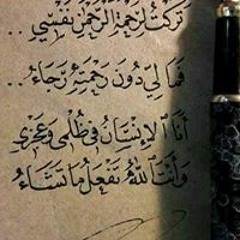 تَرَكْتُ لِرَحْمَةِ الرَّحْمَنِ نَفْسِي ..
فَمَا لِي دُونَ رَحْمَتِهِ رَجَاءُ ..
أَنَا الإِنْسَانُ فِي ظُلْمِي وَعَجْزِي
وَأَنْتَ اللهُ تَفْعَلُ مَا تَشَاءُ